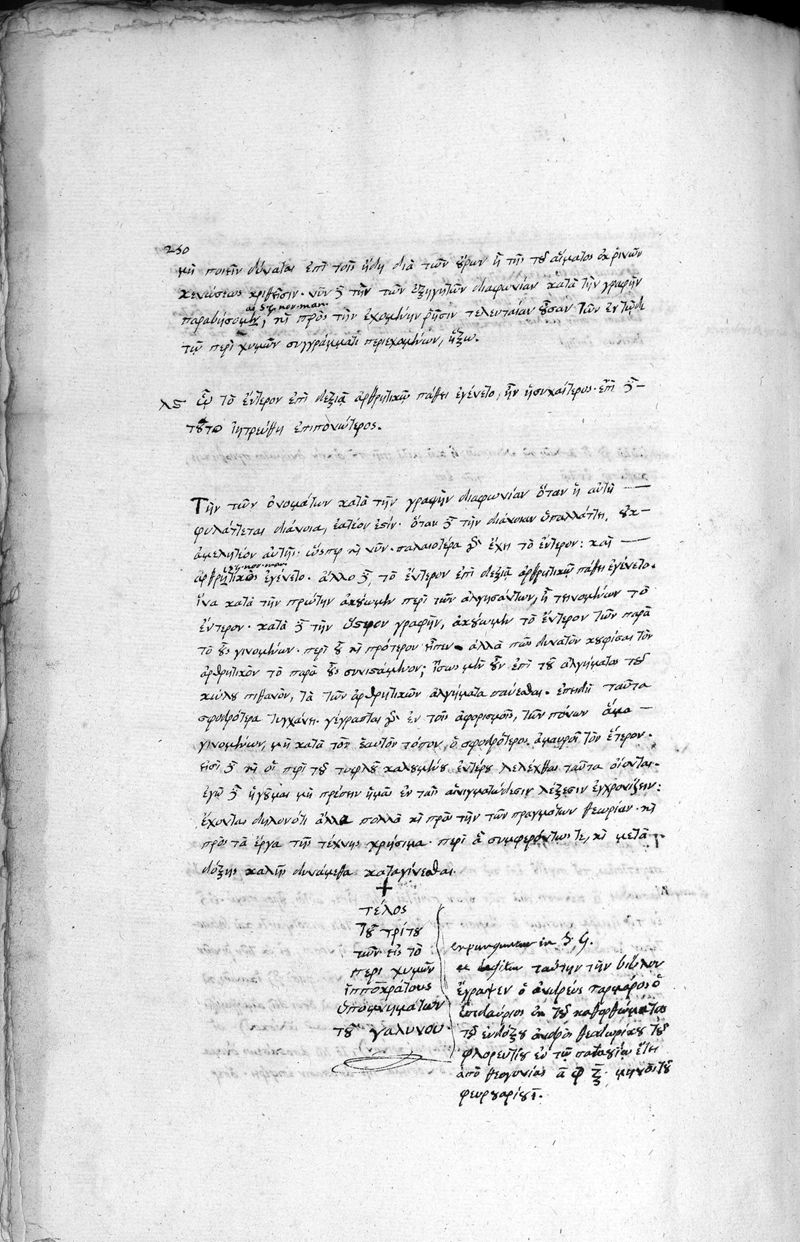 250
μὴ ποιεῖν δύναται ἐπὶ τοῖς ἤδη διὰ τῶν οὔρων ἢ τῆς τοῦ αἵματος ἐκ ῥινῶν
κενώσεως κριθεῖσιν· νῦν δὲ τὴν τῶν ἐξηγητῶν διαφωνίαν κατὰ τὴν γραφὴν
πρὸς τὴν ἐχομένην ῥῆσιν τελευταίαν οὖσαν τῶν ἐν τῷδε
τῷ περὶ χυμῶν συγγράμματι περιεχομένων, ἥξω.
λϛ ᾧ τὸ ἔντερον ἐπὶ δεξιὰ ἀρθριτικῷ πάθει ἐγένετο, ἦν ἡσυχαίτερος· ἐπεὶ δὲ
τοῦτο ἰητρεύθη ἐπιπονώτερος.
Τὴν τῶν ὀνομάτων κατὰ τὴν γραφὴν διαφωνίαν ὅταν ἡ αὐτὴ
φυλάττεται διάνοια, ἐατέον ἐστίν· ὅταν δὲ τὴν διάνοιαν ὑπαλλάττῃ, οὐκ
ἀμελητέον αὐτῆς· ὥσπερ καὶ νῦν· παλαιοτέρα γὰρ ἔχει τὸ ἔντερον: καὶ
ἀρθριτικὸς ἐγένετο· ἄλλο δὲ, τὸ ἔντερον ἐπὶ δεξιὰ ἀρθριτικῷ πάθει ἐγένετο·
ἵνα κατὰ τὴν πρώτην ἀκούωμεν περὶ τῶν ἀλγησάντων, ἢ τεινομένων τὸ
ἔντερον· κατὰ δὲ τὴν ὕστερον γραφὴν, ἀκούωμεν τὸ ἔντερον τῶν παρὰ
τὸ οὖς γινομένων· περὶ οὗ καὶ πρότερον εἶπεν· ἀλλὰ πῶς δυνατὸν κουφίσαι τὸν
ἀρθριτικὸν τὸ παρὰ οὖς συνιστάμενον; ἴσως μὲν οὖν ἐπὶ τοῦ ἀλγήματος τοῦ
κώλου πιθανὸν, τὰ τῶν ἀρθριτικῶν ἀλγήματα παύεσθαι· ἐπειδὴ ταῦτα
σφοδρότερα τυγχάνει· γέγραπται γὰρ ἐν τοῖς ἀφορισμοῖς, τῶν πόνων ἅμα
γινομένων, μὴ κατὰ τὸν ἑαυτὸν τόπον, ὁ σφοδρότερος ἀμαυροῖ τὸν ἕτερον·
εἰσὶ δὲ καὶ οἳ περὶ τοῦ τυφλοῦ καλουμένου ἐντέρου λελέχθαι ταῦτα οἴονται·
ἐγὼ δὲ ἡγοῦμαι μὴ πρέπειν ἡμᾶς ἐν ταῖς αἰνιγματώδεσιν λέξεσιν ἐγχρονίζειν:
ἔχοντας δηλονότι ἄλλα πολλὰ καὶ πρὸς τὴν τῶν πραγμάτων θεωρίαν· καὶ
πρὸς τὰ ἔργα τῆς τέχνης χρήσιμα· περὶ ἃ συμφερόντως τε, καὶ μετὰ
δόξης καλῆς δυνάμεθα καταγίνεσθαι.
τέλος
τοῦ τρίτου
τῶν εἰς τὸ
περὶ χυμῶν
ἱπποκράτους
ὑπομνημάτων
τοῦ γαληνοῦ
ταύτην τὴν βίβλον
ἔγραψεν ὁ ἀνδρέας δαρμάριος ὁ
ἐπιδαύριος
τοῦ ἐνδόξου ἀνδρὸς θεοδώρου τοῦ
φλορεντίου ἐν τῷ ἔτει
ἀπὸ θεογονίας
φευρουαρίου